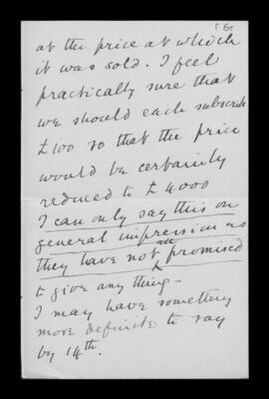 at the price at which
it was sold. I feel
practically sure that
we should each subscribe
£100 so that the price
would be certainly
reduced to £4000
I can only say this on
general impression as
they have not all promised
to give any thing -
I may have something
more definite to say
by 14th.